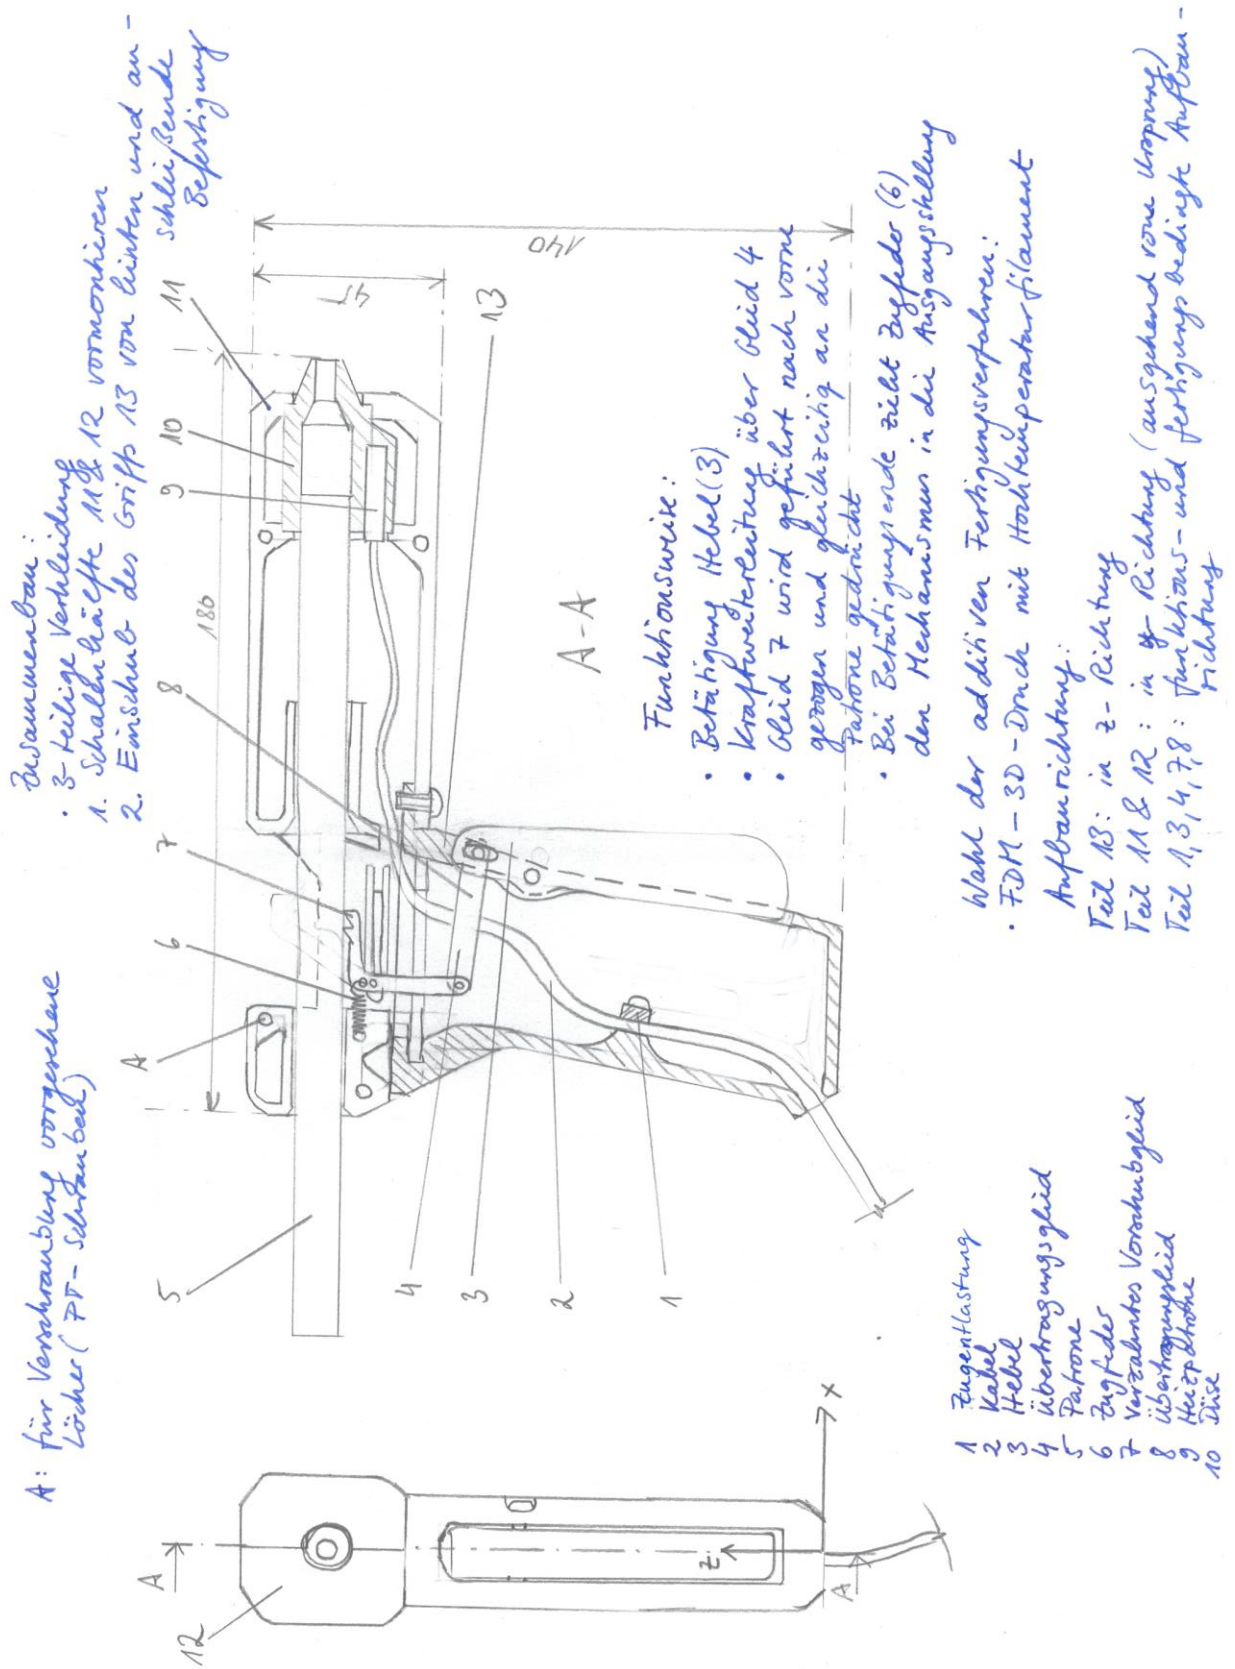 A: für Verschraubung vorgesehene
Löcher (PT-Schrauben)
Zusammenbau:
· 3-teilige Verkleidung
1. Schalenhälfte 11 & 12 vormontieren
2. Einschub des Griffs 13 von hinten und an-
schließende
Befestigung
5
A
6
7
8
9
10
11
180
45
140
13
4
3
2
1
A-A
12
A
A
z
x
Funktionsweise:
· Betätigung Hebel (3)
· Kraftweiterleitung über Glied 4
· Glied 7 wird geführt nach vorne
gezogen und gleichzeitig an die
Patrone gedrückt
· Bei Betätigungsende zieht Zugfeder (6)
den Mechanismus in die Ausgangsstellung
Wahl der additiven Fertigungsverfahren:
· FDM-3D-Druck mit Hochtemperaturfilament
Aufbaurichtung:
Teil 13: in z-Richtung
Teil 11 & 12: in y-Richtung (ausgehend vom Ursprung)
Teil 1,3,4,7,8: funktions- und fertigungsbedingte Aufbau-
richtung
1 Zugentlastung
2 Kabel
3 Hebel
4 Übertragungsglied
5 Patrone
6 Zugfeder
7 Verzahntes Vorschubglied
8 Übertragungsglied
9 Heizpatrone
10 Düse